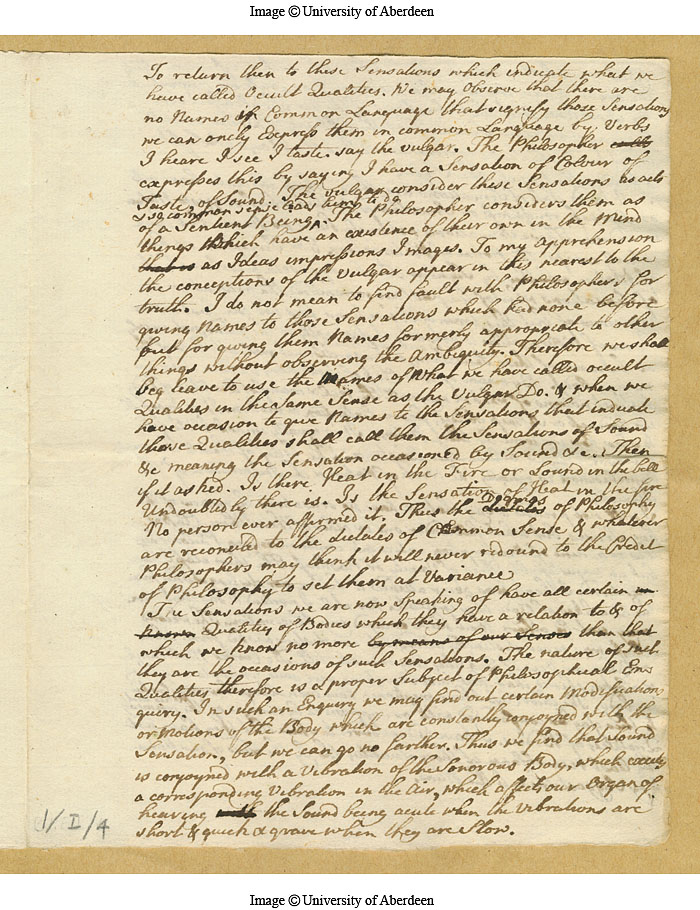 Image © University of Aberdeen
To return then to these Sensations which indicate what we
have called Occult Qualities. We may Observe that there are
no Names in Common Language that signify those Sensations
we can only Express them in common Language by Verbs
I heare I see I taste. say the vulgar. The Philosopher
expresses this by saying I have a Sensation of Colour of
Taste, of Sound. The vulgar consider these Sensations as acts
& so common sense leads him to do
of a Sentient Being. The Philosopher considers them as
things which have an existence of their own in the Mind
that is as Ideas impressions Images. To my apprehension
the conceptions of the Vulgar appear in this nearest to the
truth. I do not mean to find fault with Philosophers for
giving Names to those Sensations which had none before
but for giving them Names formerly appropriate to other
things without observing the Ambiguity. Therefore we shall
beg leave to use the Names of What we have called occult
Qualities in the Same Sense as the Vulgar Do. & when we
have occasion to give Names to the Sensations that indicate
those Qualities shall call them the Sensations of Sound
&c meaning the Sensation occasioned by Sound &c. Then
if it asked. Is there Heat in the Fire or Sound in the bell
Undoubtedly there is. Is the Sensation of Heat in the fire
No person ever affirmed it. Thus the dictates Dogmas of Philosophy
are reconciled to the dictates of Common Sense & whatever
Philosophers may think it will never redound to the Credit
of Philosophy to set them at Variance
The Sensations we are now Speaking of have all certain un
known Qualitys of Bodies which they have a relation to & of
which we know no more by means of our Senses than that
they are the occasions of such Sensations. The nature of such
Qualities therefore is a proper Subject of Philosophical En
quiry. In such an Enquiry we may find out certain Modifications
or Motions of the Body which are constantly conjoyned with the
Sensation, but we can go no farther. Thus we find that Sound
is conjoyned with a Vibration of the Sonorous Body, which excites
a corresponding Vibration in the Air, which affects our Organ of
hearing the Sound being acute when the Vibrations are
short & quick & grave when they are Slow.
1/I/4
Image © University of Aberdeen